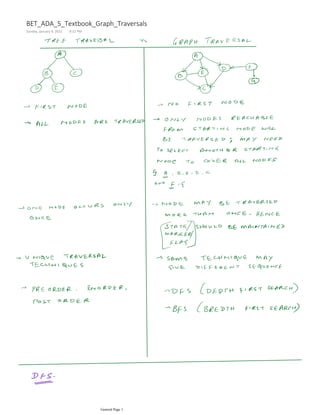 BET_ADA_5_Textbook_Graph_Traversals
TREE TRAVERSAL Vs GRAPH TRAVERSAL
A
B C
D E
A
B E D F
C G
→ FIRST NODE
→ ALL NODES ARE TRAVERSED
→ NO FIRST NODE
→ ONLY NODES REACHABLE
FROM STARTING NODE WILL
BE TRAVERSED; MAY NEED
TO SELECT ANOTHER STARTING
NODE TO COVER ALL NODES
→ ONE NODE OCCURS ONLY
ONCE
→ NODE MAY BE TRAVERSED
MORE THAN ONCE. HENCE
STATE/ SHOULD BE MAINTAINED
MARKER/
FLAG
→ UNIQUE TRAVERSAL
TECHNIQUES
→ SAME TECHNIQUE MAY
GIVE DIFFERENT SEQUENCE
→ PREORDER, INORDER,
POST ORDER
→ DFS (DEPTH FIRST SEARCH)
→ BFS (BREDTH FIRST SEARCH)
DFS.
General Page 1